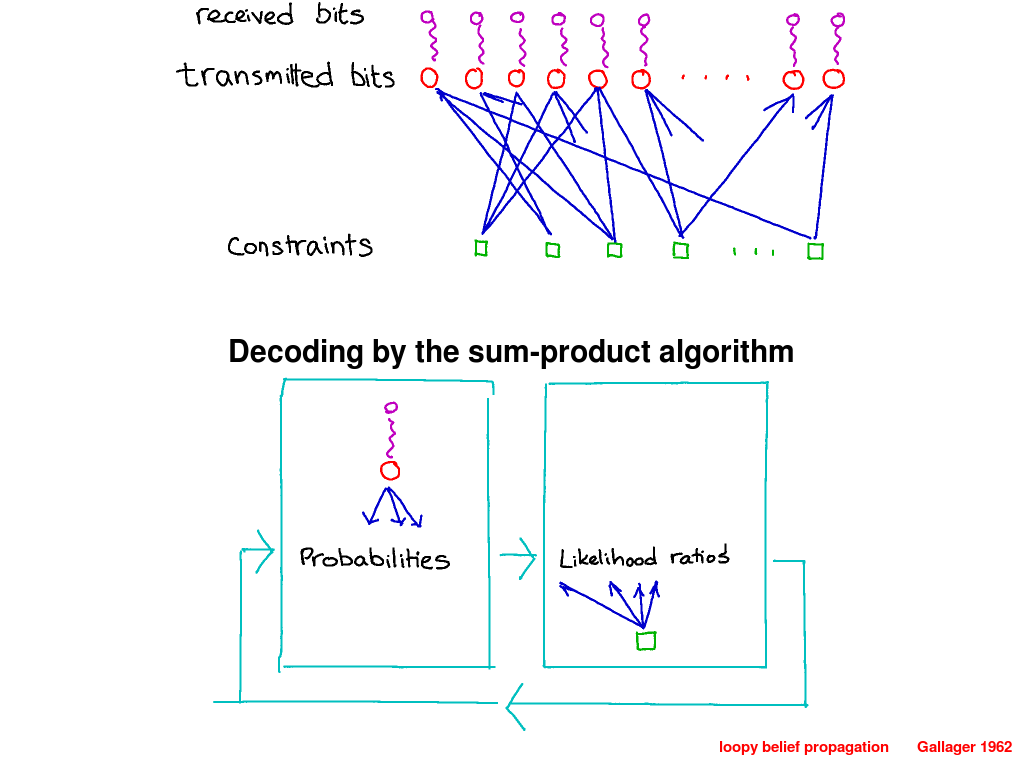 received bits
transmitted bits
constraints
Decoding by the sum-product algorithm
Probabilities
Likelihood ratios
loopy belief propagation Gallager 1962